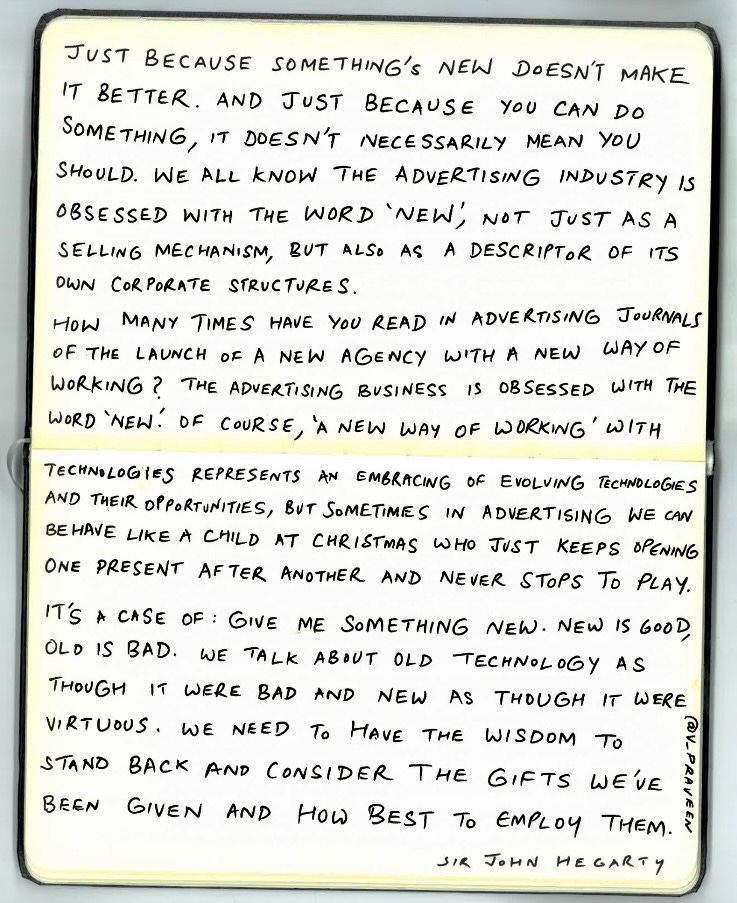 JUST BECAUSE SOMETHING'S NEW DOESN'T MAKE
IT BETTER. AND JUST BECAUSE YOU CAN DO
SOMETHING, IT DOESN'T NECESSARILY MEAN YOU
SHOULD. WE ALL KNOW THE ADVERTISING INDUSTRY IS
OBSESSED WITH THE WORD 'NEW', NOT JUST AS A
SELLING MECHANISM, BUT ALSO AS A DESCRIPTOR OF ITS
OWN CORPORATE STRUCTURES.
HOW MANY TIMES HAVE YOU READ IN ADVERTISING JOURNALS
OF THE LAUNCH OF A NEW AGENCY WITH A NEW WAY OF
WORKING? THE ADVERTISING BUSINESS IS OBSESSED WITH THE
WORD 'NEW'. OF COURSE, 'A NEW WAY OF WORKING' WITH
TECHNOLOGIES REPRESENTS AN EMBRACING OF EVOLVING TECHNOLOGIES
AND THEIR OPPORTUNITIES, BUT SOMETIMES IN ADVERTISING WE CAN
BEHAVE LIKE A CHILD AT CHRISTMAS WHO JUST KEEPS OPENING
ONE PRESENT AFTER ANOTHER AND NEVER STOPS TO PLAY.
IT'S A CASE OF: GIVE ME SOMETHING NEW. NEW IS GOOD,
OLD IS BAD. WE TALK ABOUT OLD TECHNOLOGY AS
THOUGH IT WERE BAD AND NEW AS THOUGH IT WERE
VIRTUOUS. WE NEED TO HAVE THE WISDOM TO
STAND BACK AND CONSIDER THE GIFTS WE'VE
BEEN GIVEN AND HOW BEST TO EMPLOY THEM.
SIR JOHN HEGARTY
@V_PRAVEEN